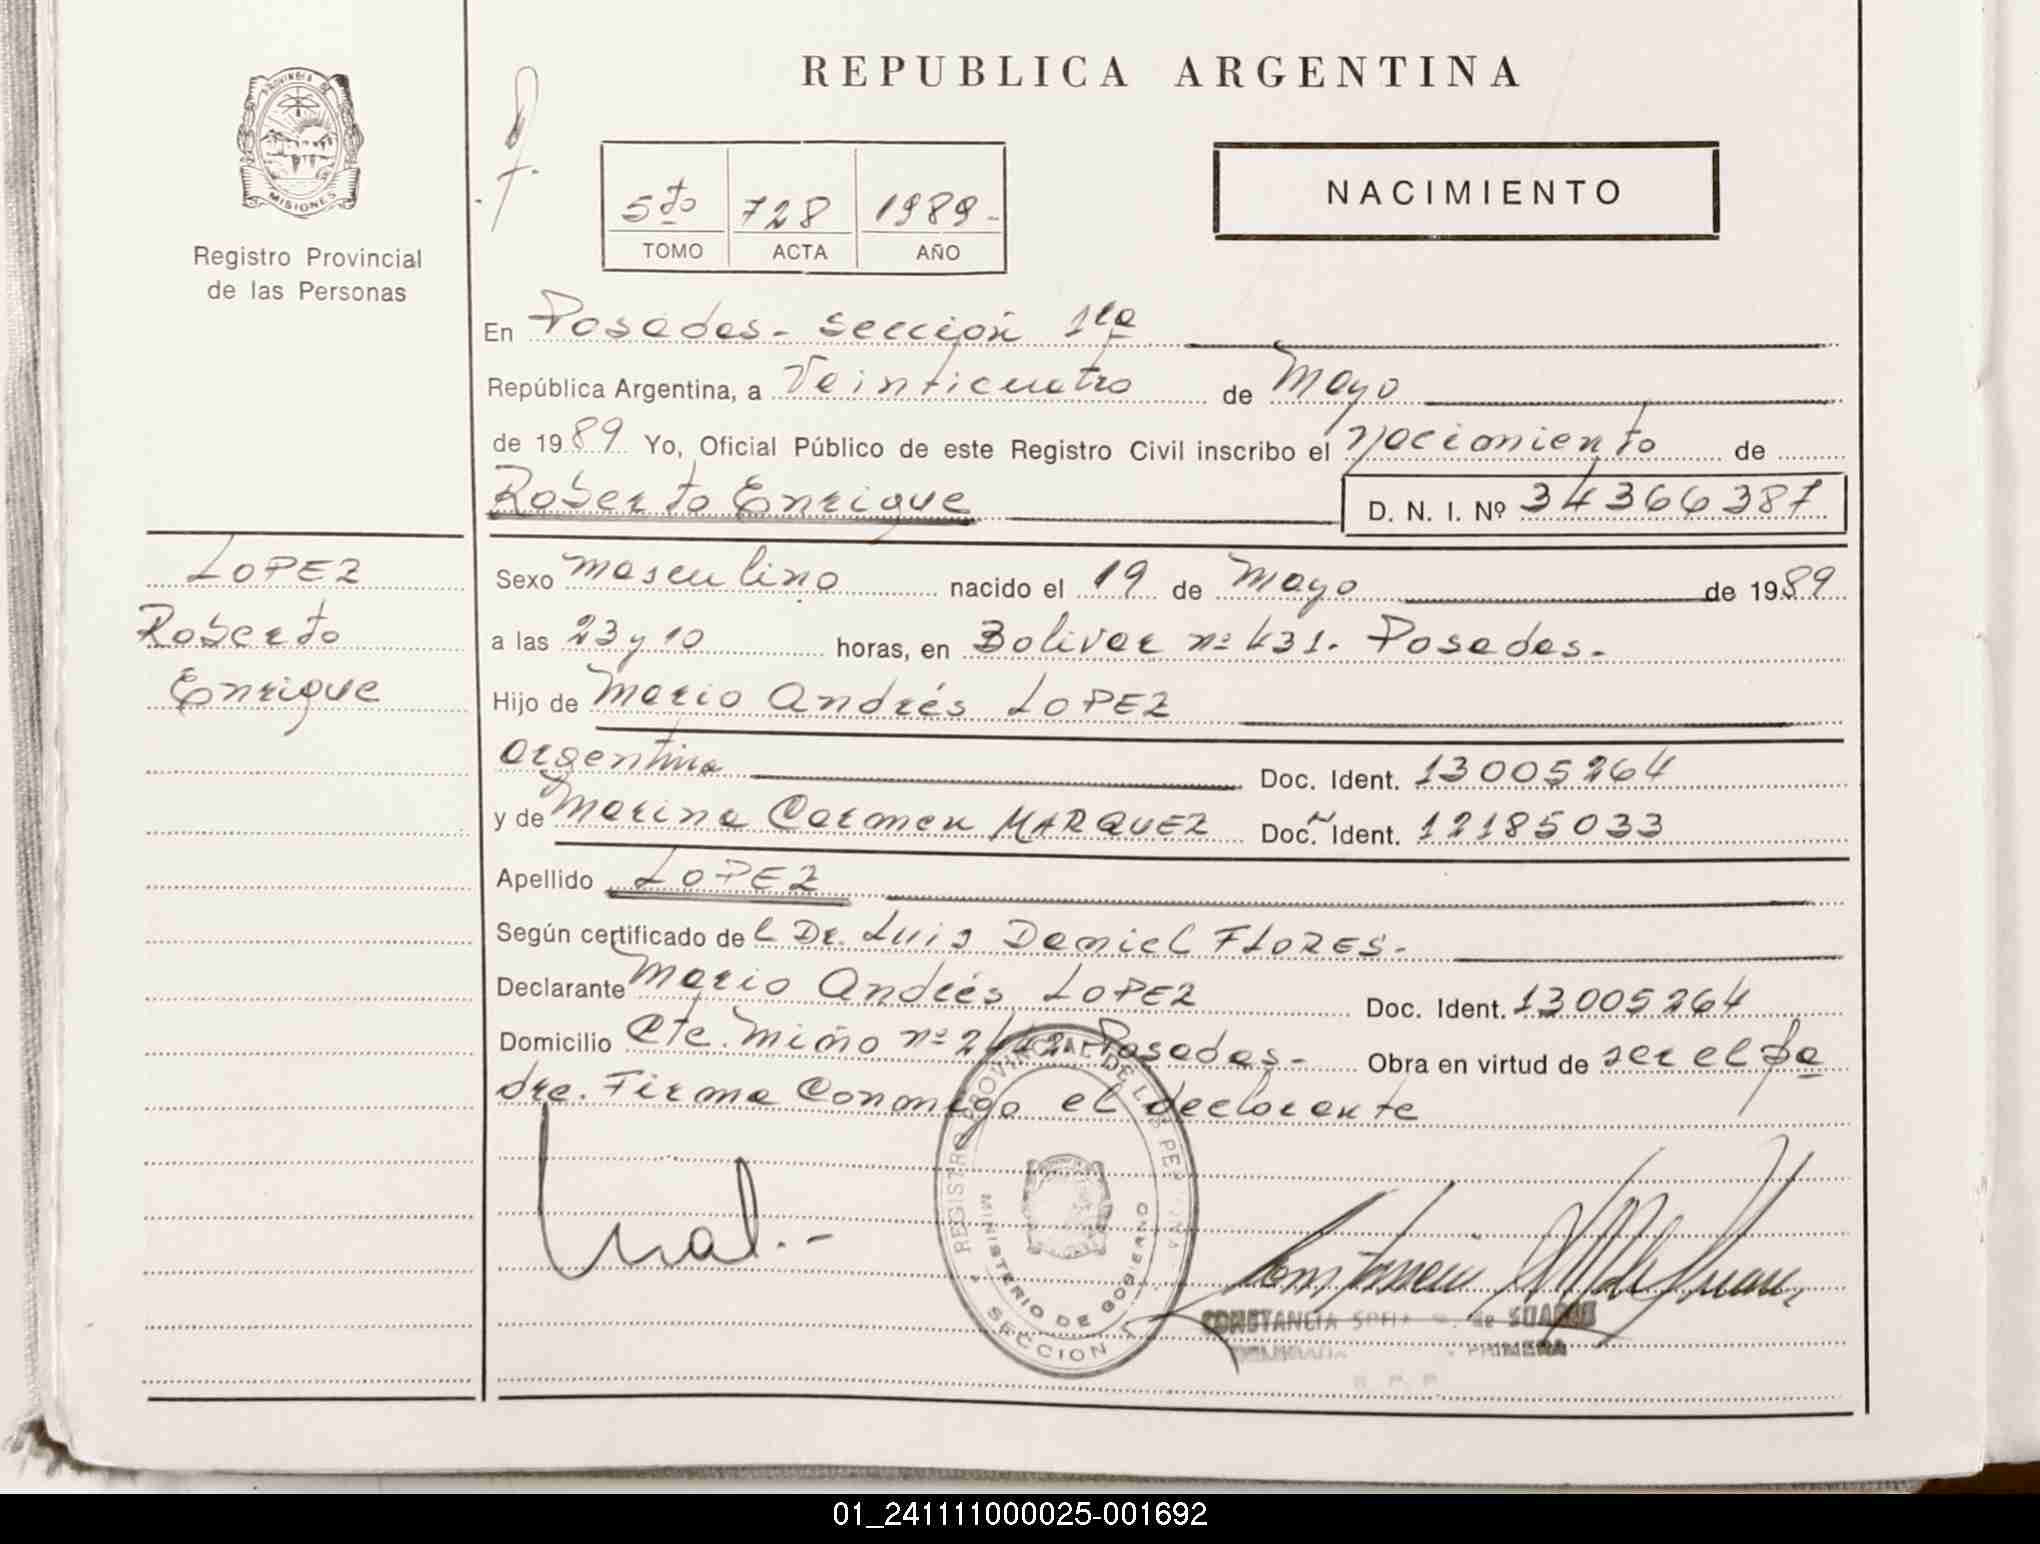 REPUBLICA ARGENTINA
PROVINCIA DE
MISIONES
Registro Provincial
de las Personas
5to 728 1989-
TOMO ACTA AÑO
NACIMIENTO
En Posadas - Sección 1ra
República Argentina, a Veinticuatro de Mayo
de 1989 Yo, Oficial Público de este Registro Civil inscribo el nacimiento de
Roberto Enrique D. N. I. Nº 34366387
LOPEZ
Roberto
Enrique
Sexo masculino nacido el 19 de Mayo de 1989
a las 23 y 10 horas, en Bolivar nº 431. Posadas.-
Hijo de Mario Andrés LOPEZ
argentina Doc. Ident. 13005264
y de Marina Carmen MARQUEZ Doc. Ident. 12185033
Apellido LOPEZ
Según certificado del Dr. Luis Daniel FLORES.-
Declarante Mario Andrés LOPEZ Doc. Ident. 13005264
Domicilio Cte. Miño nº Posadas- Obra en virtud de ser el pa
dre. Firma Conmigo el declarante
REGISTRO PROVINCIAL DE LAS PERSONAS
MINISTERIO DE GOBIERNO
SECCION 1
CONSTANCIA de SUAREZ
PRIMERA
01_241111000025-001692